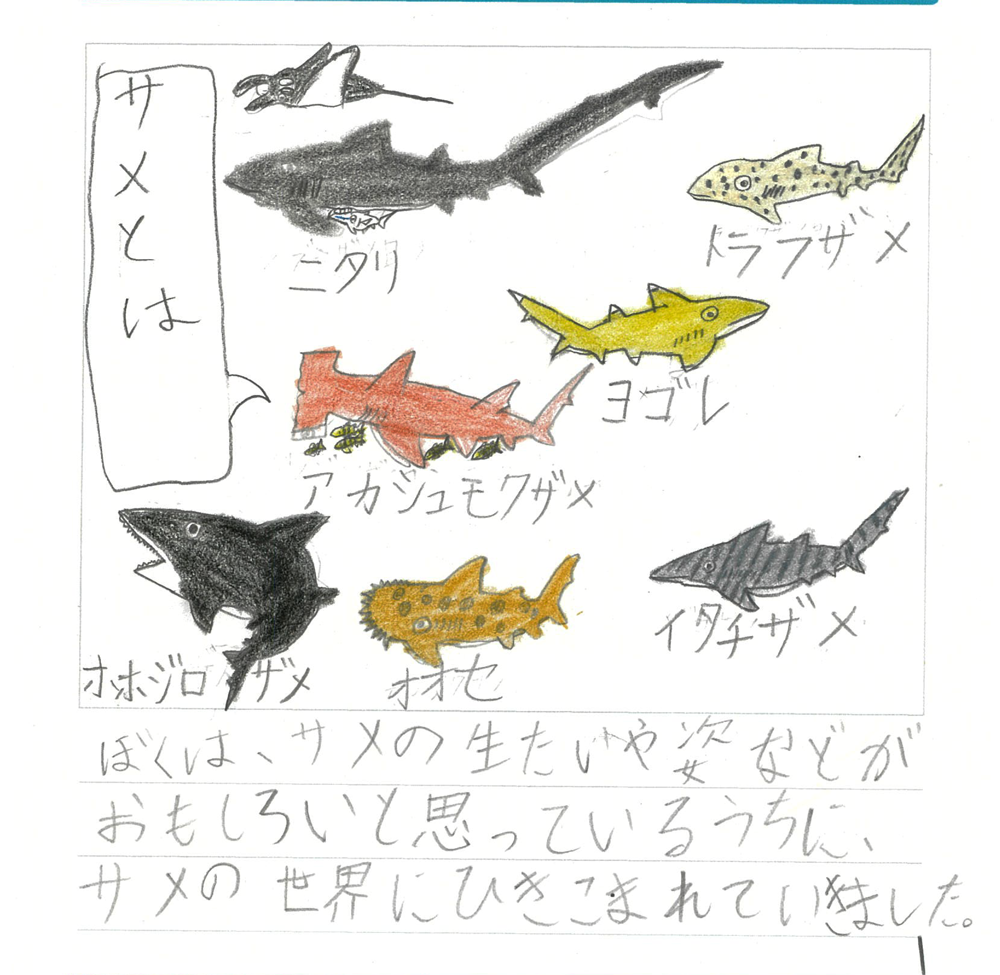 サメとは
ニタリ
トラフザメ
ヨゴレ
アカシュモクザメ
ホホジロザメ
オオセ
イタチザメ
ぼくは、サメの生たいや姿などが
おもしろいと思っているうちに、
サメの世界にひきこまれていきました。